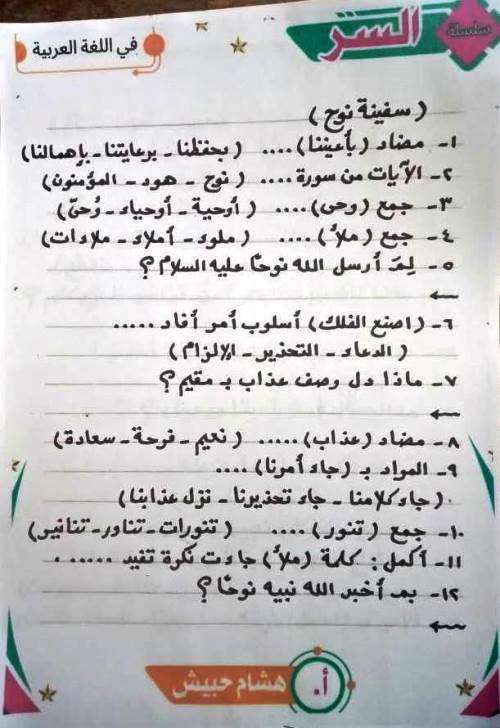 سلسلة
السر
في اللغة العربية
( سفينة نوح )
١- مضاد (بأعيننا) .... ( بحفظنا - برعايتنا - بإهمالنا)
٢- الآيات من سورة .... ( نوح - هود - المؤمنون)
٣- جمع (وحى) .... ( أوحية - أوحياء - وُحىّ)
٤- جمع (ملأ) .... ( ملوء - أملاء - ملاءات)
٥- لِمَ أرسل الله نوحًا عليه السلام؟
←
٦- (اصنع الفلك) أسلوب أمر أفاد .....
( الدعاء - التحذير - الإلزام)
٧- ماذا دل وصف عذاب بـ مقيم؟
←
٨- مضاد (عذاب) ..... ( نعيم - فرحة - سعادة)
٩- المراد بـ (جاء أمرنا) ....
(جاء كلامنا - جاء تحذيرنا - نزل عذابنا)
١٠- جمع ( تنور) .... ( تنورات - تناور - تنانير)
١١- أكمل: كلمة (ملأ) جاءت نكرة تفيد ..... .
١٢- بمَ أخبر الله نبيه نوحًا؟
←
أ.
هشام حبيش